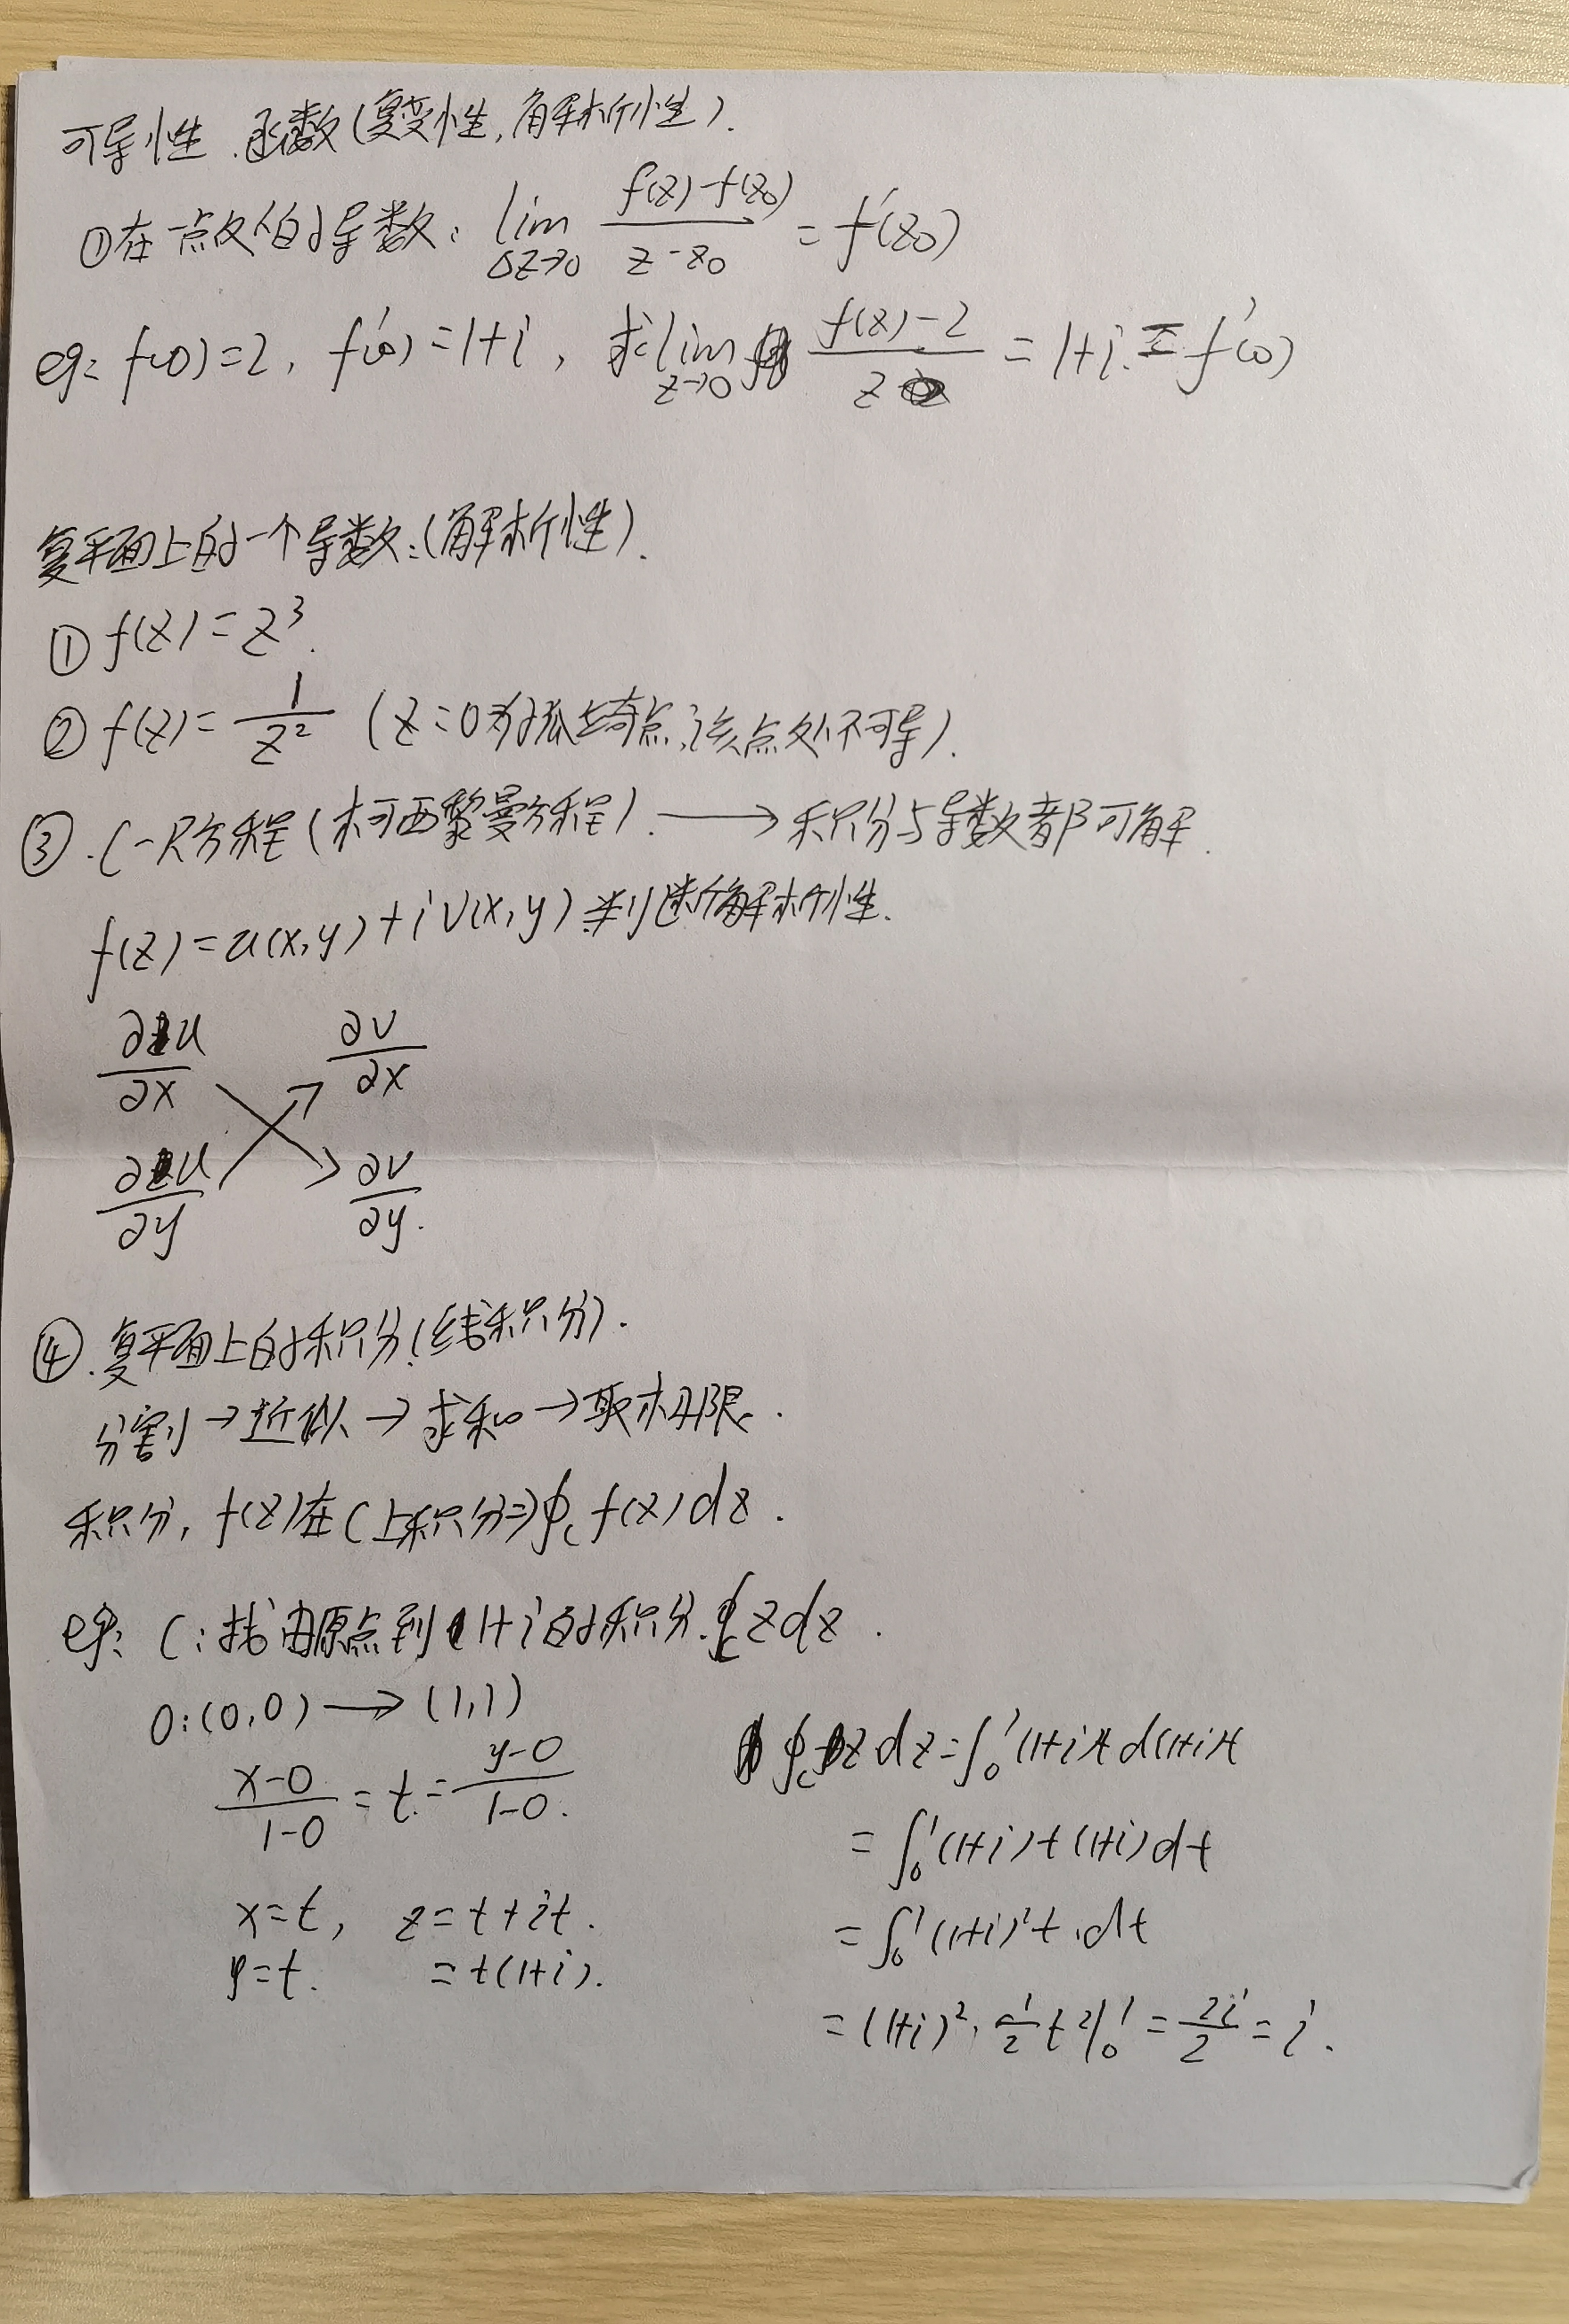 可导性.函数(复变性,解析性).
①在一点处的导数: lim Δz→0 (f(z)-f(z₀))/(z-z₀) = f'(z₀)
eg: f(0)=2, f'(0)=1+i, 求 lim z→0 (f(z)-2)/z = 1+i. = f'(0)
复平面上的一个导数:(解析性).
① f(z)=z³.
② f(z)=1/z² (z=0为孤立奇点,该点处不可导).
③.C-R方程(柯西黎曼方程). → 积分与导数都可解.
f(z)=u(x,y)+iv(x,y)判断解析性.
∂u/∂x ∂v/∂x
∂u/∂y ∂v/∂y.
④.复平面上的积分(线积分).
分割→近似→求和→取极限.
积分, f(z)在C上积分⇒∮c f(z)dz.
eg: C:找由原点到1+i的积分.∮c zdz.
0:(0,0)→(1,1)
(x-0)/(1-0)=t=(y-0)/(1-0).
x=t, z=t+it.
y=t. =t(1+i).
∮c z dz=∫₀¹(1+i)t d(1+i)t
=∫₀¹(1+i)t(1+i)dt
=∫₀¹(1+i)²t.dt
=(1+i)²·1/2t²|₀¹=2i/2=i.